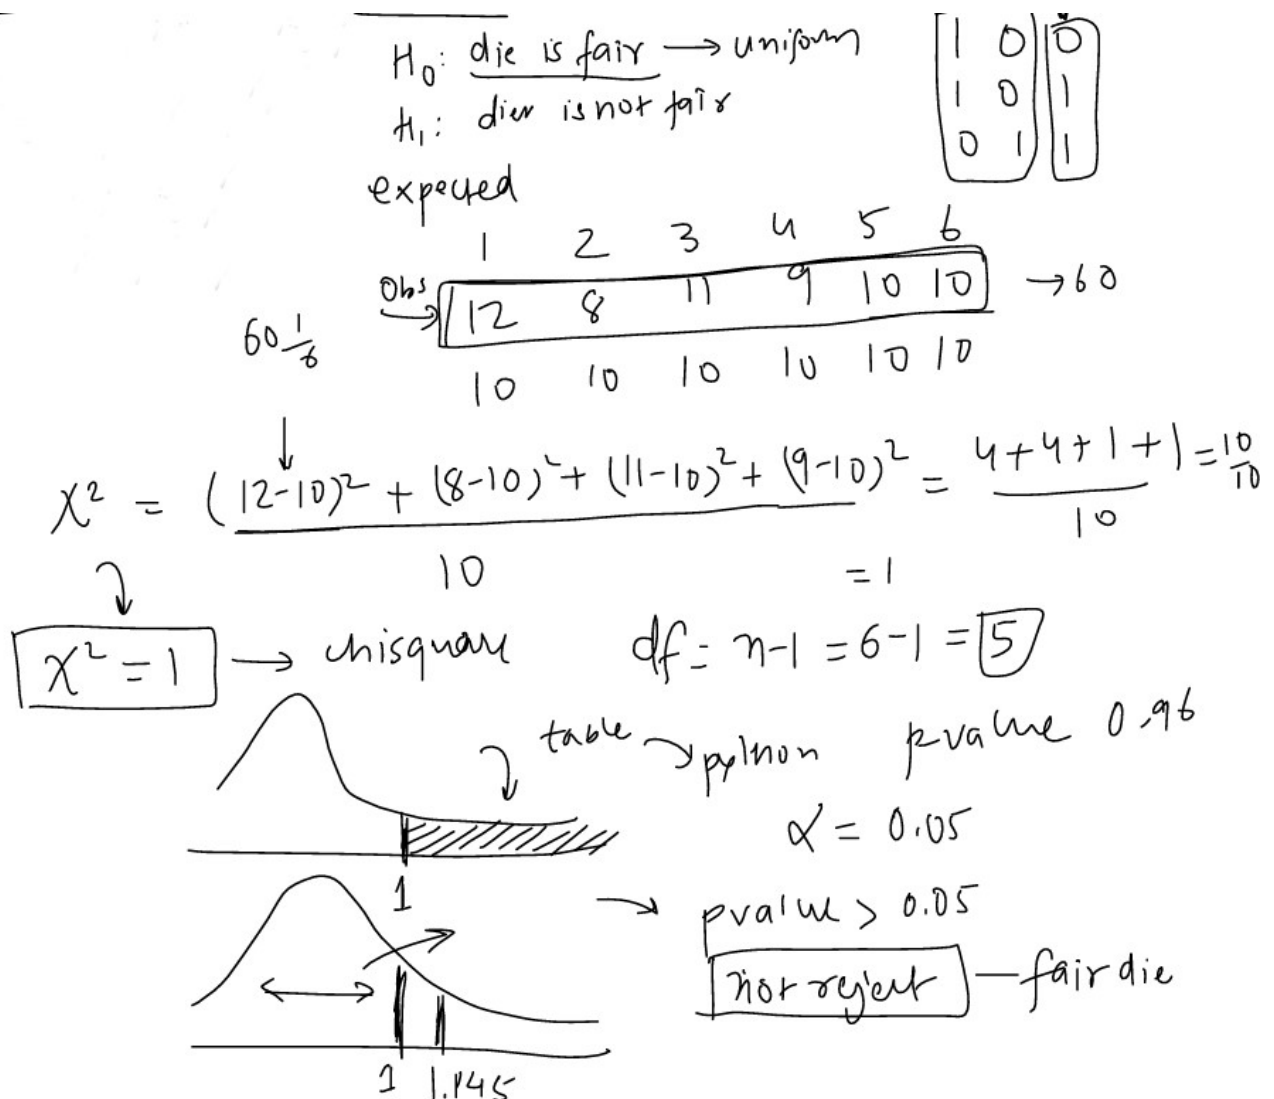 H₀: die is fair → uniform
H₁: dier is not fair
1 0 0
1 0 1
0 1 1
expected
1 2 3 4 5 6
Obs → 12 8 11 9 10 10 → 60
60 1/6
10 10 10 10 10 10
χ² = (12-10)² + (8-10)² + (11-10)² + (9-10)² / 10 = 4+4+1+1 / 10 = 10/10
= 1
χ² = 1 → chisquare
df = n-1 = 6-1 = 5
table → python
pvalue 0.96
α = 0.05
1
→ pvalue > 0.05
not reject — fair die
1 1.145